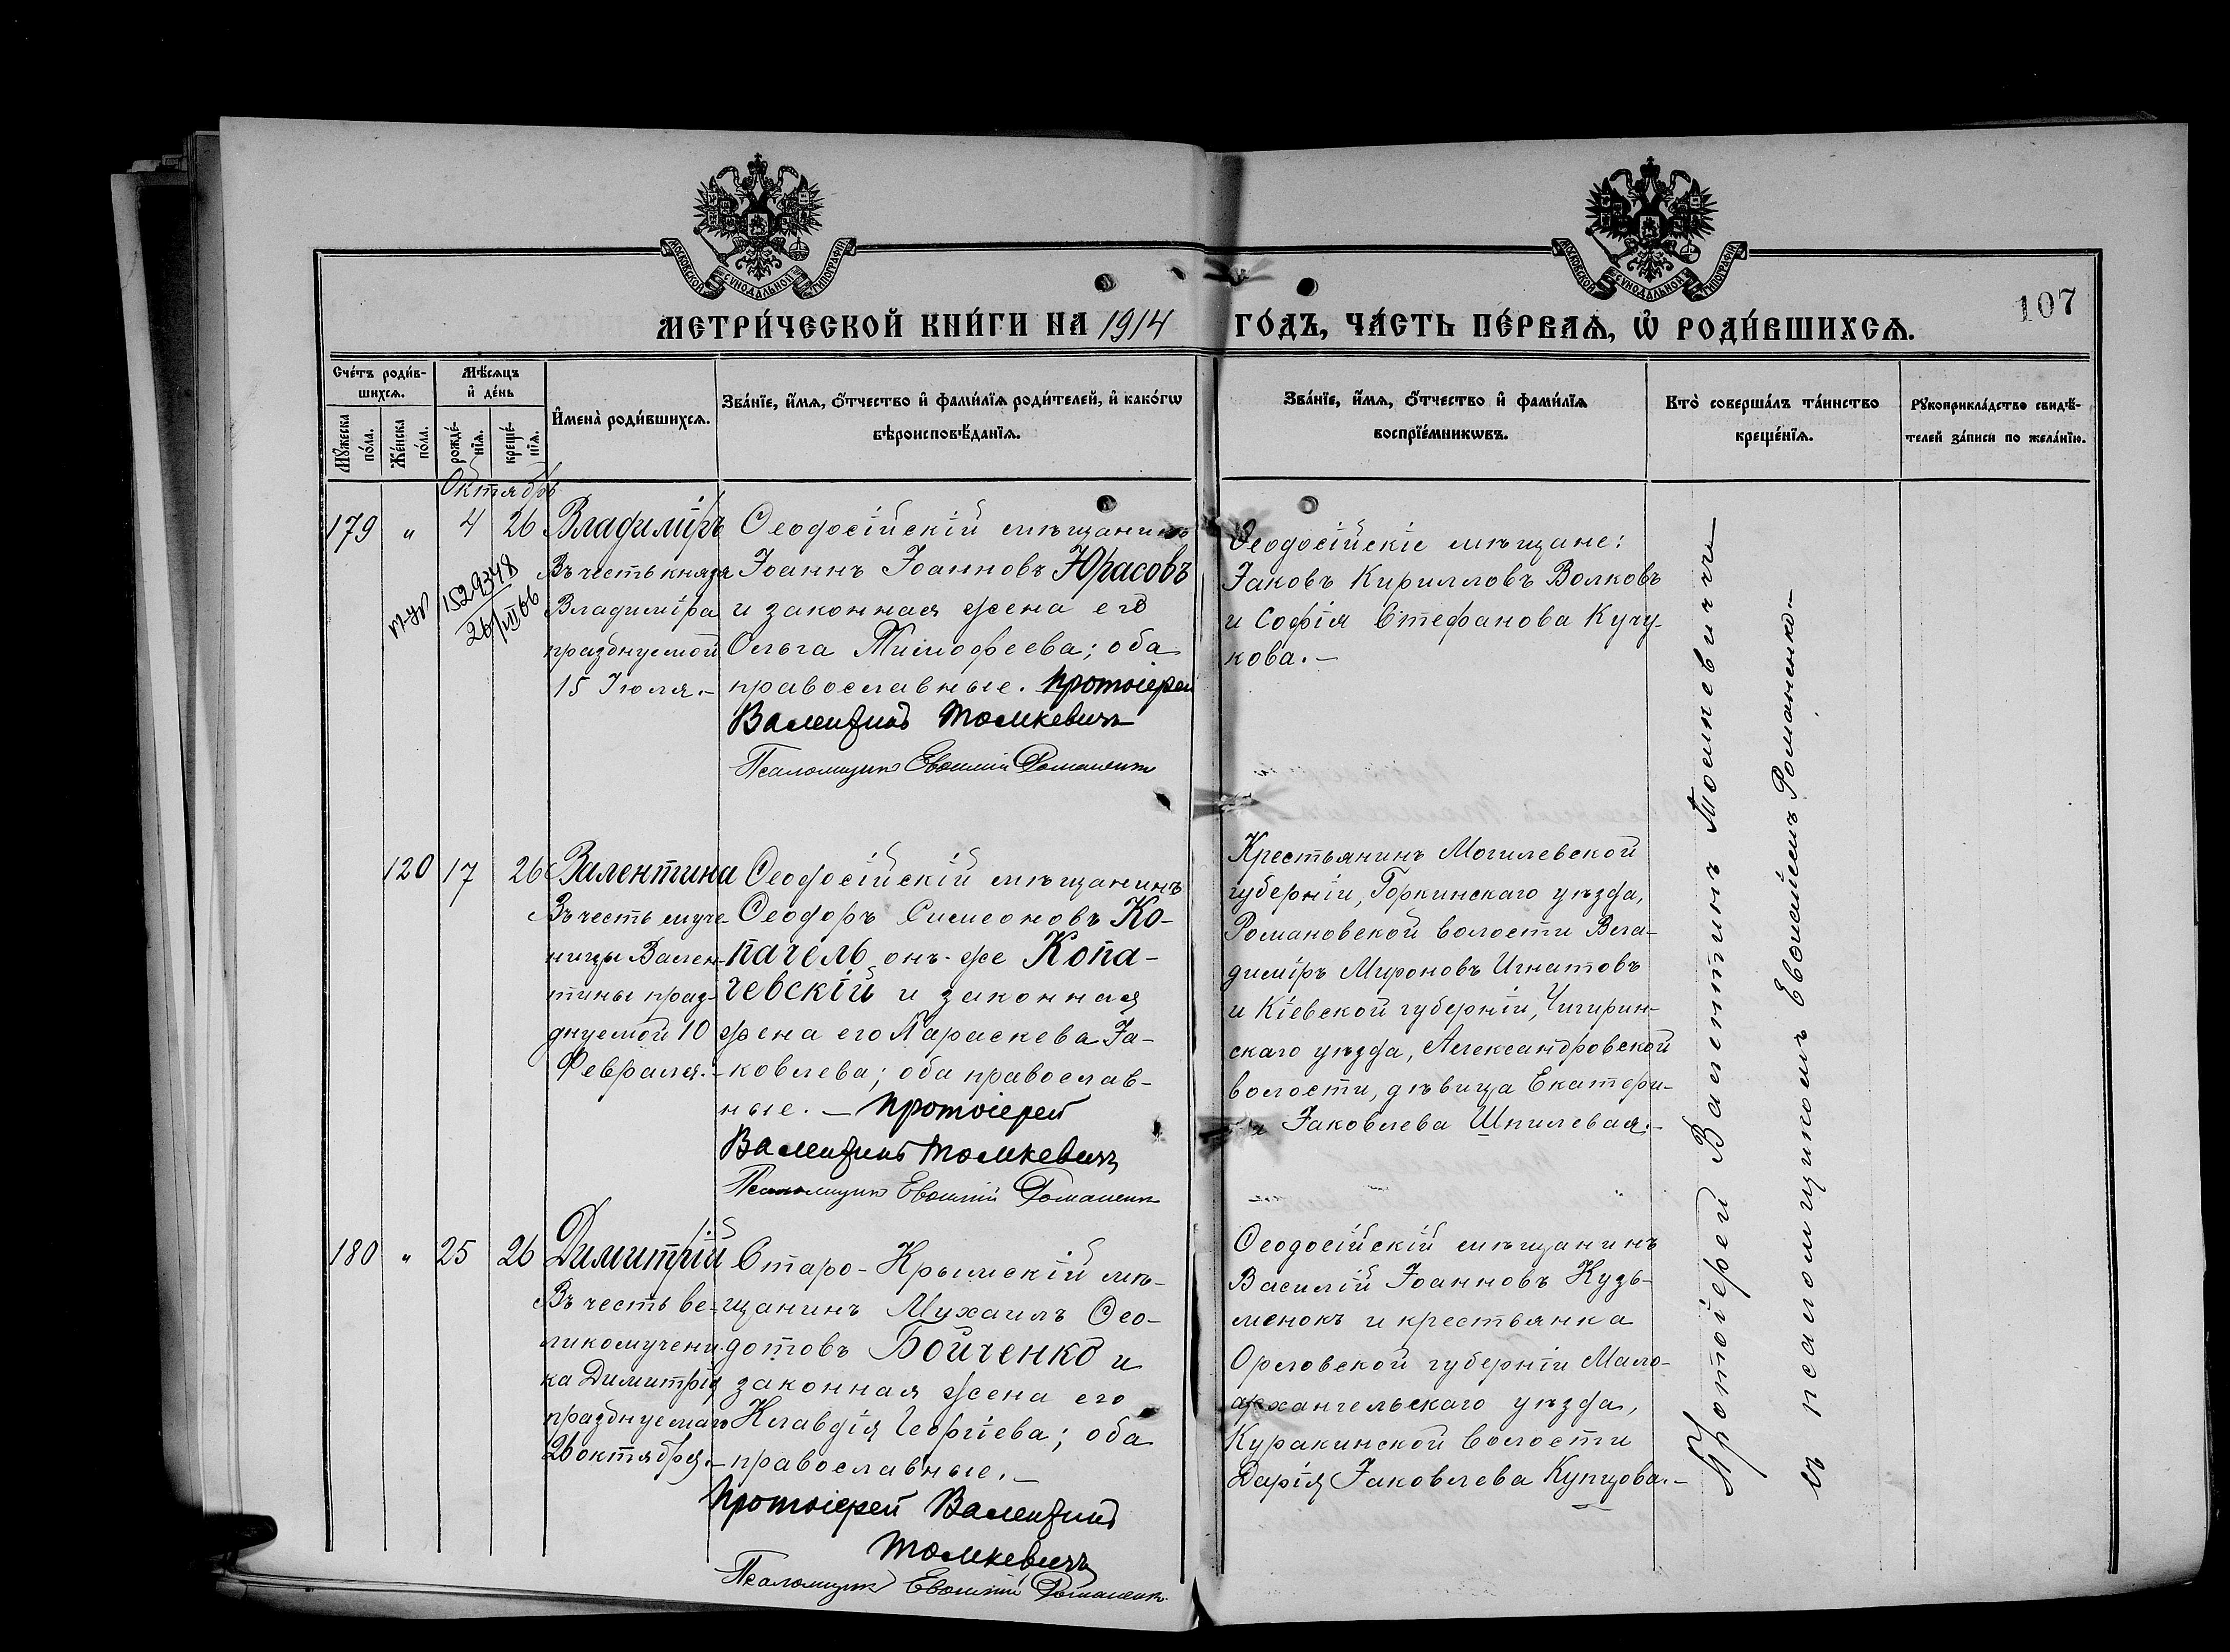 МОСКОВСКОЙ СѴНОДАЛЬНОЙ ТИПОГРАФІИ
МОСКОВСКОЙ СѴНОДАЛЬНОЙ ТИПОГРАФІИ
107
МЕТРИ́ЧЕСКОЙ КНИ́ГИ НА 1914 ГО́ДЪ, ЧА́СТЬ ПЕ́РВАѦ, Ѽ РОДИ́ВШИХСѦ.
Сче́тъ роди́в-
шихсѧ.
Мѣ́сѧцъ
и҆ де́нь
Мꙋ́жеска
по́ла.
Же́нска
по́ла.
рожде́-
нїѧ.
креще́-
нїѧ.
И҆мена̀ роди́вшихсѧ.
Зва́нїе, и҆́мѧ, ѻ҆́тчество и҆ фами́лїѧ роди́телей, и҆ како́гѡ
вѣроисповѣ́данїѧ.
Зва́нїе, и҆́мѧ, ѻ҆́тчество и҆ фами́лїѧ
воспрїе́мникѡвъ.
Кто̀ соверша́лъ та́инство
креще́нїѧ.
Рꙋкоприкла́дство свидѣ́-
телей за́писи по жела́нїю.
Октябрь
179 " 4 26
1529348
26/VII 66
Владиміръ
Въ честь князя
Владиміра
празднуемой
15 Іюля.-
Ѳеодосійскій мѣщанинъ
Іоаннъ Іоанновъ Юрасовъ
и законная жена его
Ольга Тимофеева; оба
православные. Протоіерей
Валентинъ Томкевичъ
Псаломщикъ Евѳимій Романенко
Ѳеодосійскіе мѣщане:
Іаковъ Кирилловъ Волковъ
и Софія Стефанова Кучу-
кова.-
120 17 26
Валентина
Въ честь муче-
ницы Вален-
тины праз-
днуемой 10
Февраля.-
Ѳеодосійскій мѣщанинъ
Ѳеодоръ Симеоновъ Ко-
пачель онъ-же Копа-
чевскій и законная
жена его Параскева Іа-
ковлева; оба православ-
ные.- Протоіерей
Валентинъ Томкевичъ
Псаломщикъ Евѳимій Романенко
Крестьянинъ Могилевской
губерніи, Горкинскаго уѣзда,
Романовской волости Вла-
диміръ Мироновъ Игнатовъ
и Кіевской губерніи, Чигирин-
скаго уѣзда, Александровской
волости, дѣвица Екатери-
на Іаковлева Шпилевая.-
180 " 25 26
Димитрій
Въ честь ве-
ликомучени-
ка Димитрія
празднуемаго
26 октября.-
Старо-Крымскій мѣ-
щанинъ Михаилъ Ѳео-
дотовъ Бойченко и
законная жена его
Клавдія Георгіева; оба
православные.-
Протоіерей Валентинъ
Томкевичъ
Псаломщикъ Евѳимій Романенко
Ѳеодосійскій мѣщанинъ
Василій Іоанновъ Кузь-
менокъ и крестьянка
Орловской губерніи Мало-
архангельскаго уѣзда,
Куракинской волости
Дарія Іаковлева Купцова.-
Протоіерей Валентинъ Томкевичъ
съ псаломщикомъ Евѳиміемъ Романенко.-